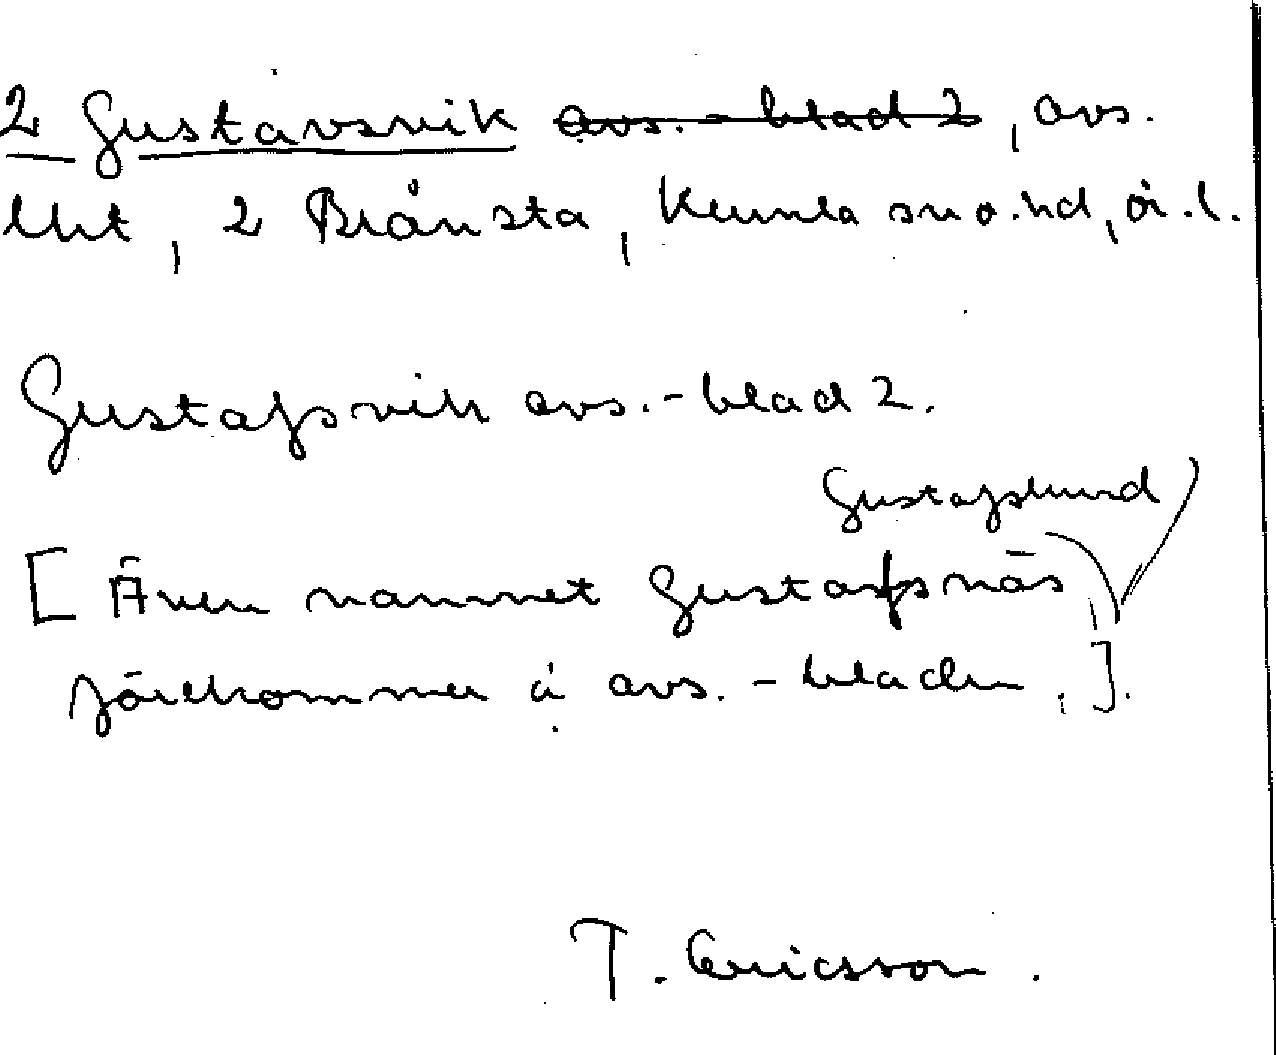 2 Gustavsvik avs.-blad 2, avs.
lht, 2 Brånsta, Kumla sn o. hd, ör. l.
Gustafsvik avs.-blad 2.
Gustafslund
[Även namnet Gustafsnäs
förekommer å avs.-bladen.].
T. Ericsson.